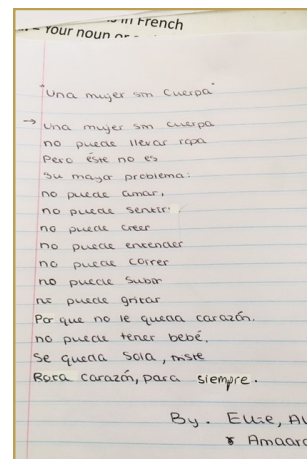 is in French
Your noun or
"Una mujer sin Cuerpa"
→ Una mujer sin cuerpa
no puede llevar ropa
Pero éste no es
Su mayor problema:
no puede amar,
no puede sentir:
no puede creer
no puede entender
no puede correr
no puede subir
no puede gritar
Por que no le queda carazón.
no puede tener bebé.
Se queda sola, triste
Rora carazón, para siempre.
By. Ellie,
Amaara